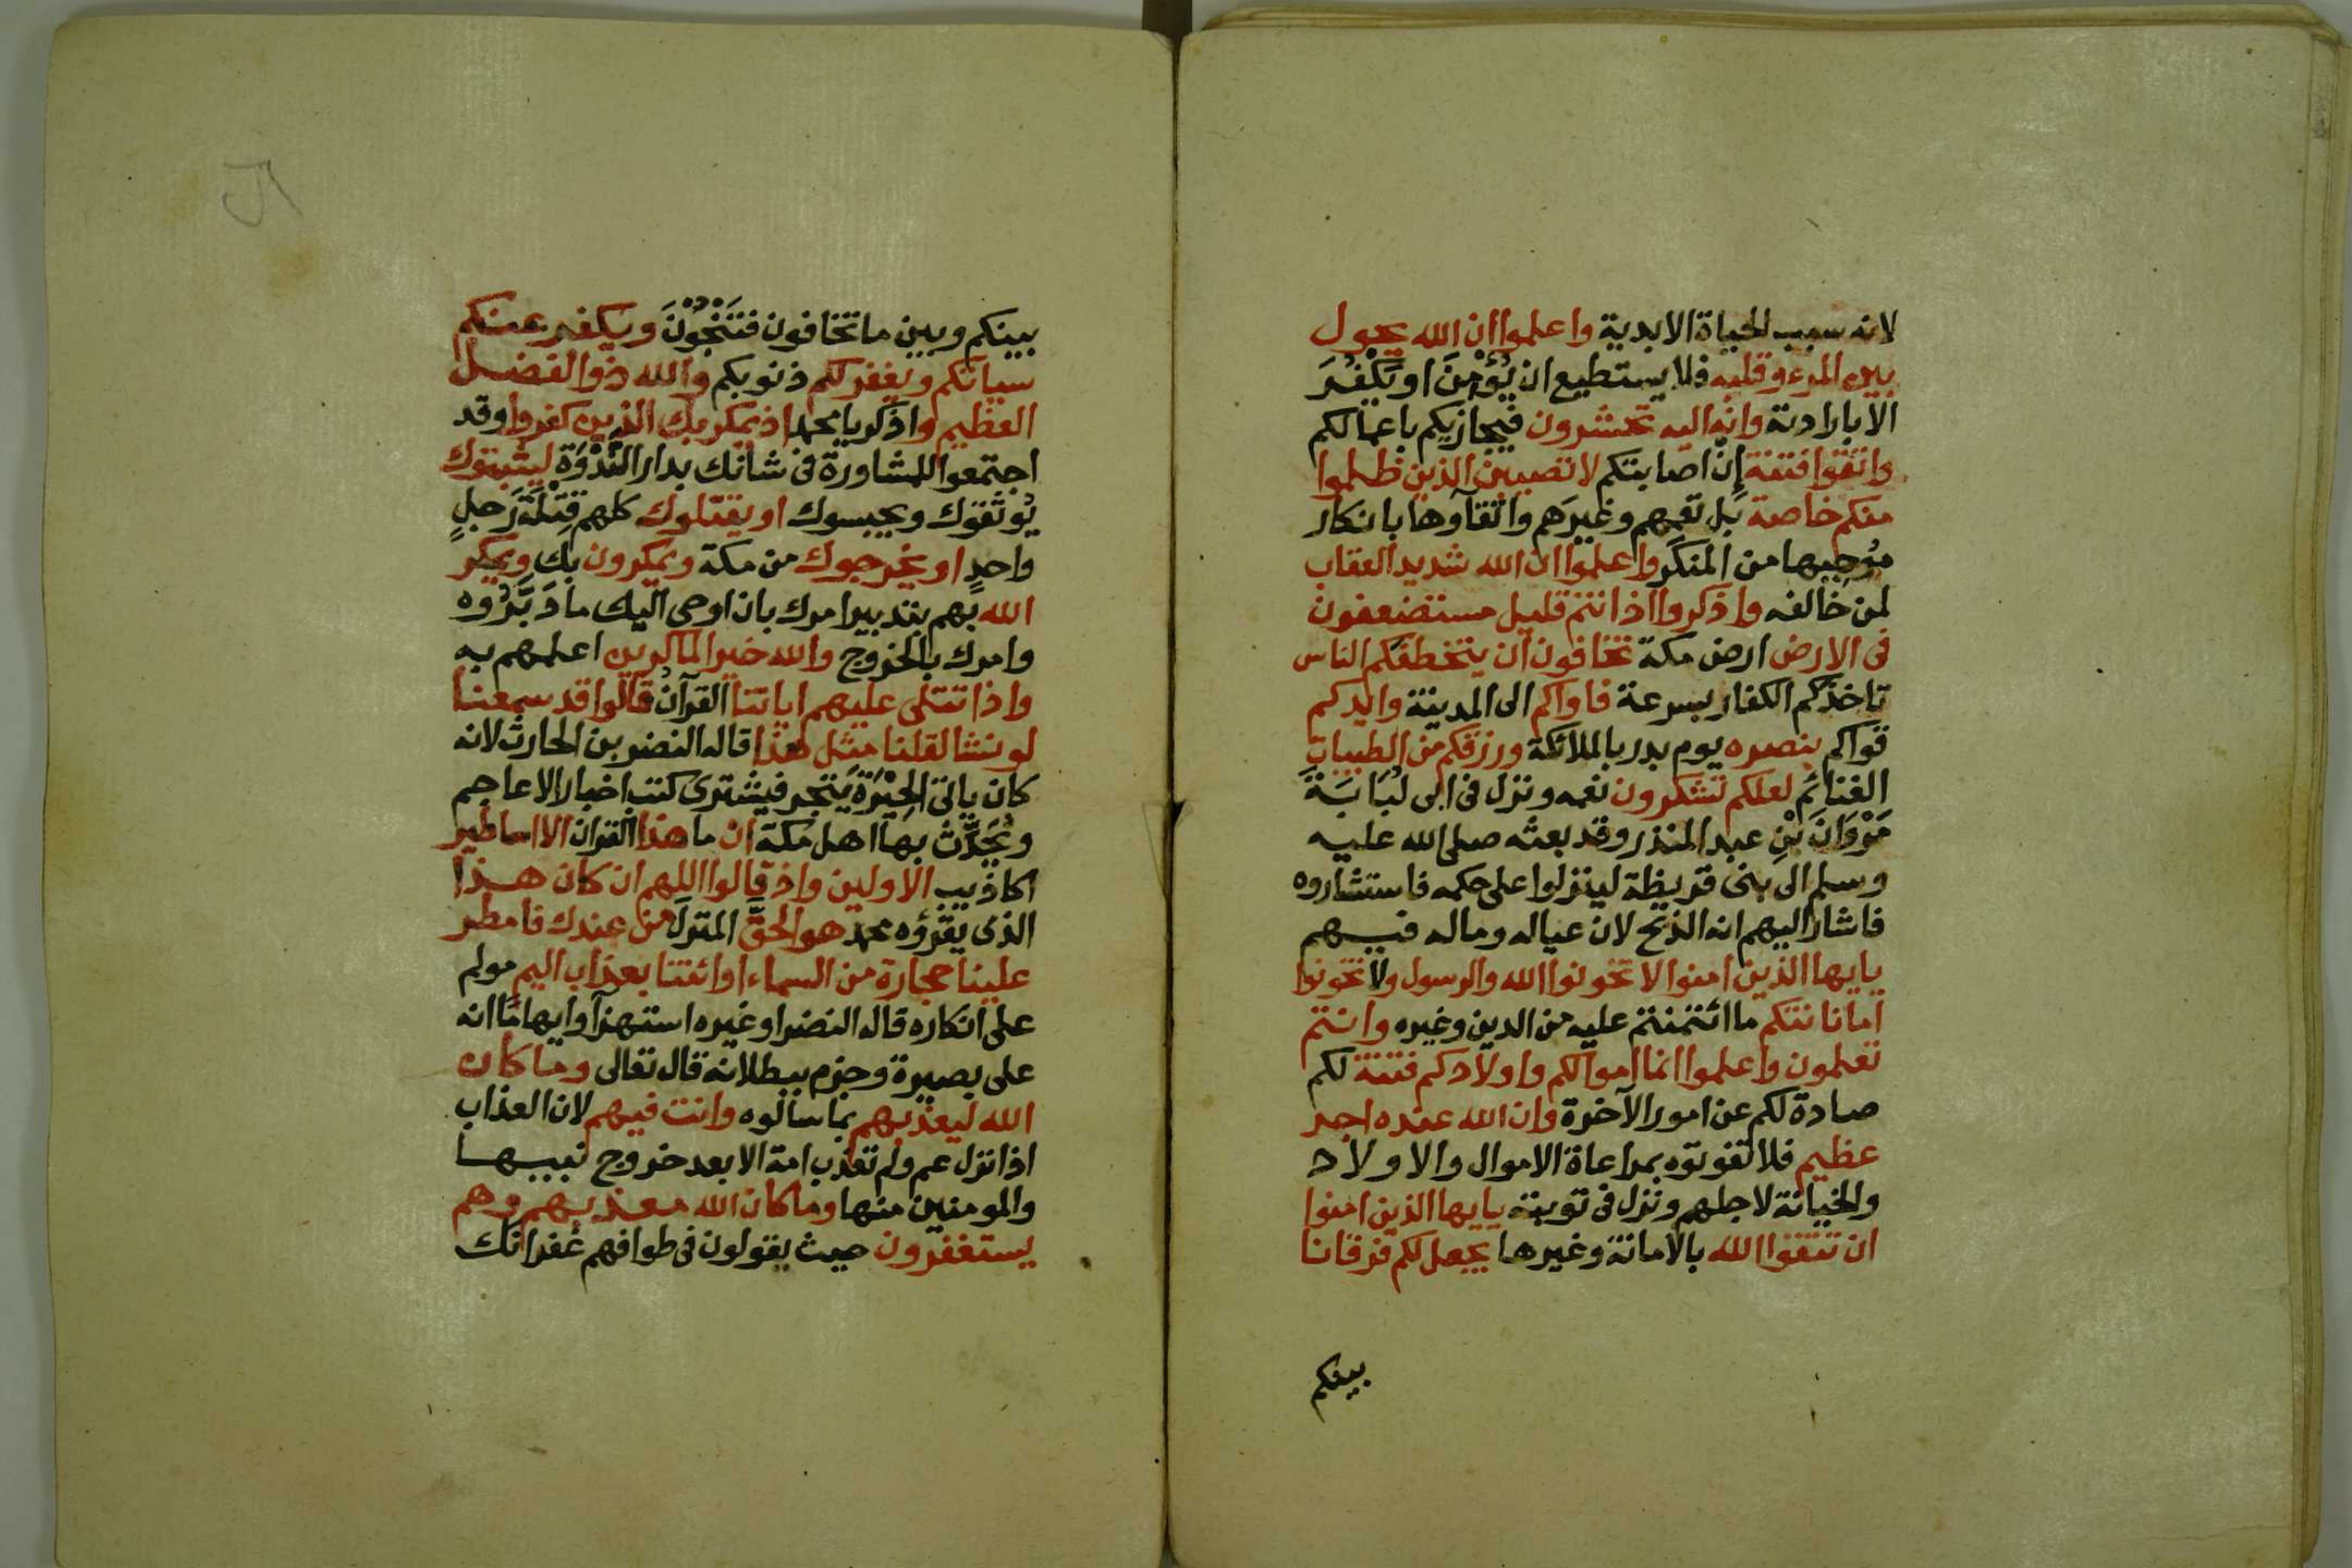 لانه سبب الحياة الابدية واعلموا ان الله يحول
بين المرء وقلبه فلا يستطيع ان يُؤْمِنَ او يَكْفُرَ
الا بارادته وانه اليه تحشرون فيجازيكم باعمالكم
واتقوا فتنة إنْ اصابتكم لا تصيبن الذين ظلموا
منكم خاصة بَل تعمهم وغيرَهم واتقاؤها بانكار
مُوجِبِها من المنكر واعلموا ان الله شديد العقاب
لمن خالفه واذكروا اذ انتم قليل مستضعفون
فى الارض ارض مكة تخافون ان يتخطفكم الناس
تاخذكم الكفار بسرعة فاواكم الى المدينة وايدكم
قواكم بنصره يوم بدر بالملائكة ورزقكم من الطيبات
الغنائم لعلكم تشكرون نعمه ونزل فى ابى لُبَابَةَ
مَرْوَانَ بْنِ عبد المنذر وقد بعثه صلى الله عليه
وسلم الى بنى قريظة لينزلوا على حكمه فاستشاروه
فاشار اليهم انه الذبح لان عياله وماله فيهم
يايها الذين امنوا لا تخونوا الله والرسول ولا تخونوا
اماناتكم ما ائتمنتم عليه من الدين وغيره وانتم
تعلمون واعلموا انما اموالكم واولادكم فتنة لكم
صادة لكم عن امور الآخرة وان الله عنده اجر
عظيم فلا تفوتوه بمراعاة الاموال والاولاد
والخيانة لاجلهم ونزل فى توبته يايها الذين امنوا
ان تتقوا الله بالامانة وغيرها يجعل لكم فرقانا
بينكم
بينكم وبين ما تخافون فتَنْجُوْنَ ويكفر عنكم
سياتكم ويغفر لكم ذنوبكم والله ذوا الفضل
العظيم واذكر يا محمد اذ يمكر بك الذين كفروا وقد
اجتمعوا للمشاورة فى شانك بدار النَّدْوَة ليثبتوك
يُوثقوك ويحبسوك او يقتلوك كلهم قِتْلَةَ رَجلٍ
واحدٍ او يخرجوك من مكة ويمكرون بك ويمكر
الله بهم بتدبير امرك بان اوحى اليك ما دَبَّرُوه
وامرك بالخروج والله خير الماكرين اعلمهم به
واذا تتلى عليهم اياتنا القرآنُ قالوا قد سمعنا
لو نشا لقلنا مثل هذا قاله النضر بن الحارث لانه
كان ياتى الحِيْرَةَ يَتجر فيشترى كتب اخبار الاعاجم
ويُحَدِّثُ بها اهل مكة ان ما هذا القران الا اساطير
اكاذيب الاولين واذ قالوا اللهم ان كان هذا
الذى يقرؤه محمد هو الحقَّ المنزلَ من عندك فامطر
علينا حجارة من السماء او ائتنا بعذاب اليم مولم
على انكاره قاله النضر او غيره استهزآ وايهامًا انه
على بصيرة وجزم ببطلانه قال تعالى وما كان
الله ليعذبهم بما سالوه وانت فيهم لان العذاب
اذا نزل عم ولم تعذب امة الا بعد خروج نبيها
والمومنين منها وما كان الله معذبهم وهم
يستغفرون حيث يقولون فى طوافهم غُفرانك